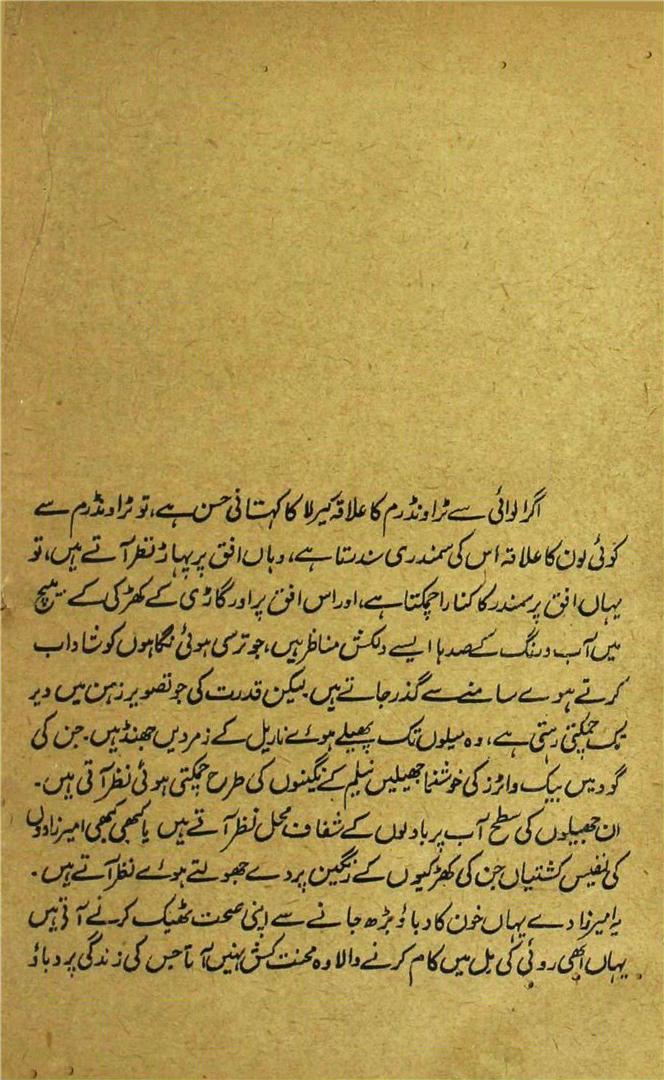 اگر الوائی سے ٹراونڈرم کا علاقہ کیرلا کا کہستانی حسن ہے، تو ٹراونڈرم سے
کوئی لون کا علاقہ اس کی سمندری سندرتا ہے، وہاں افق پر پہاڑ نظر آتے ہیں، تو
یہاں افق پر سمندر کا کنارا چمکتا ہے، اور اس افق پر اور گاڑی کے کھڑکی کے بیچ
میں آب و رنگ کے صدہا ایسے دلکش مناظر ہیں، جو ترسی ہوئی نگاہوں کو شاداب
کرتے ہوے سامنے سے گذر جاتے ہیں۔ لیکن قدرت کی جو تصویر ذہن میں دیر
تک چمکتی رہتی ہے، وہ میلوں تک پھیلے ہوئے ناریل کے زمردیں جھنڈ ہیں۔ جن کی
گود میں بیک واٹرز کی خوشنما جھیلیں نیلم کے نگینوں کی طرح چمکتی ہوئی نظر آتی ہیں۔
ان جھیلوں کی سطح آب پر بادلوں کے شفاف محل نظر آتے ہیں یا کبھی کبھی امیرزادوں
کی نفیس کشتیاں جن کی کھڑکیوں کے رنگین پردے جھولتے ہوئے نظر آتے ہیں۔
یہ امیرزادے یہاں خون کا دباؤ بڑھ جانے سے اپنی صحت ٹھیک کرنے آتے ہیں
یہاں ابھی روئی کی مل میں کام کرنے والا وہ محنت کش نہیں آتا جس کی زندگی پر دباؤ